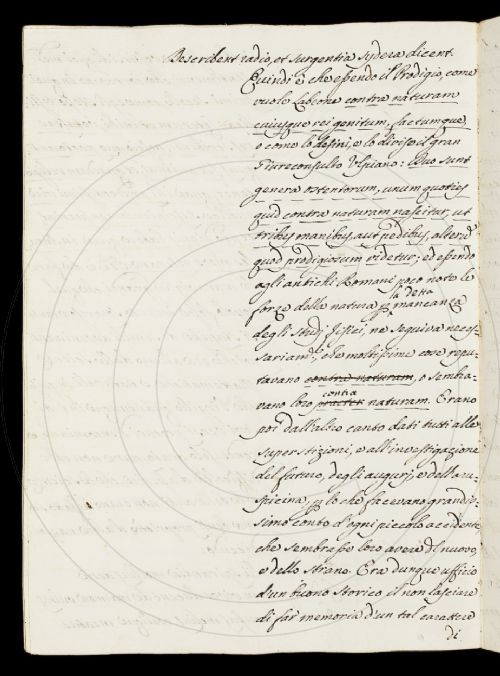 Describent radio, et surgentia sydera dicent.
Quindi è che essendo il Prodigio, come
vuole Labeone contra naturam
cuiusque rei genitum, factumque,
e come lo definì, e lo divise il gran
Giureconsulto Ulpiano: Duo sunt
genera ostentorum, unum quoties
quid contra naturam nascitur, ut
tribus manibus, aut pedibus, alterum
quod prodigiosum videtur; ed essendo
agli antichi Romani poco note le
forze della natura p la detta mancanza
degli Studj Fisici, ne seguiva neces-
sariam.e, che moltissime cose repu-
tavano contra naturam, o sembra-
vano loro praeter contra naturam. Erano
poi dall'altro canto dati tutti alle
superstizioni, e all'investigazione
del futuro, degli augurj, e dell'aru-
spicina, p lo che facevano grandis-
simo conto d'ogni piccolo accidente
che sembrasse loro avere del nuovo,
e dello strano. Era dunque uffizio
d'un buono Storico il non lasciare
di far memoria d'un tal carattere
di